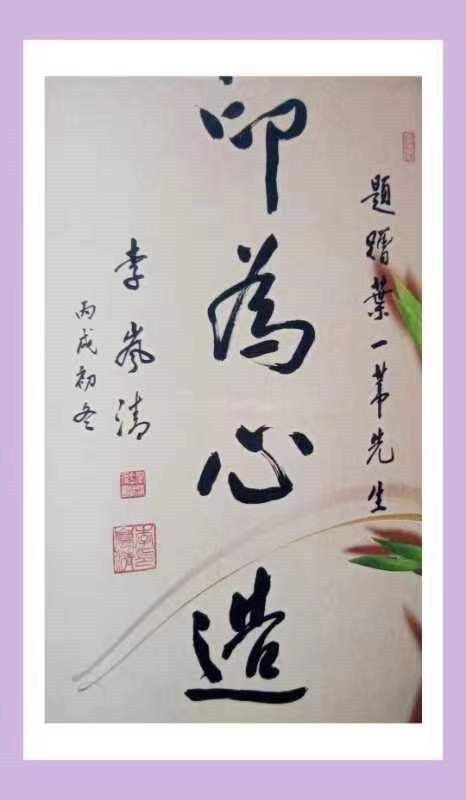 題贈葉一苇先生
印為心造
李嵐清
丙戌初冬